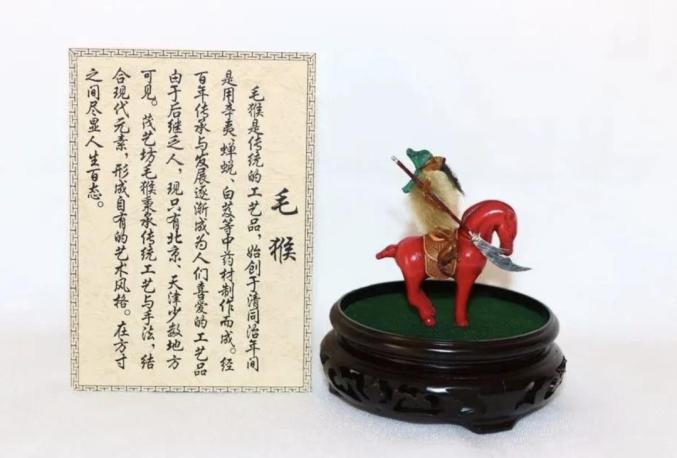 毛猴
毛猴是传统的工艺品，始创于清同治年间
是用辛夷、蝉蜕、白芨等中药材制作而成。经
百年传承与发展逐渐成为人们喜爱的工艺品
由于后继乏人，现只有北京、天津少数地方
可见。茂艺坊毛猴秉承传统工艺与手法，结
合现代元素，形成自有的艺术风格。在方寸
之间尽显人生百态。